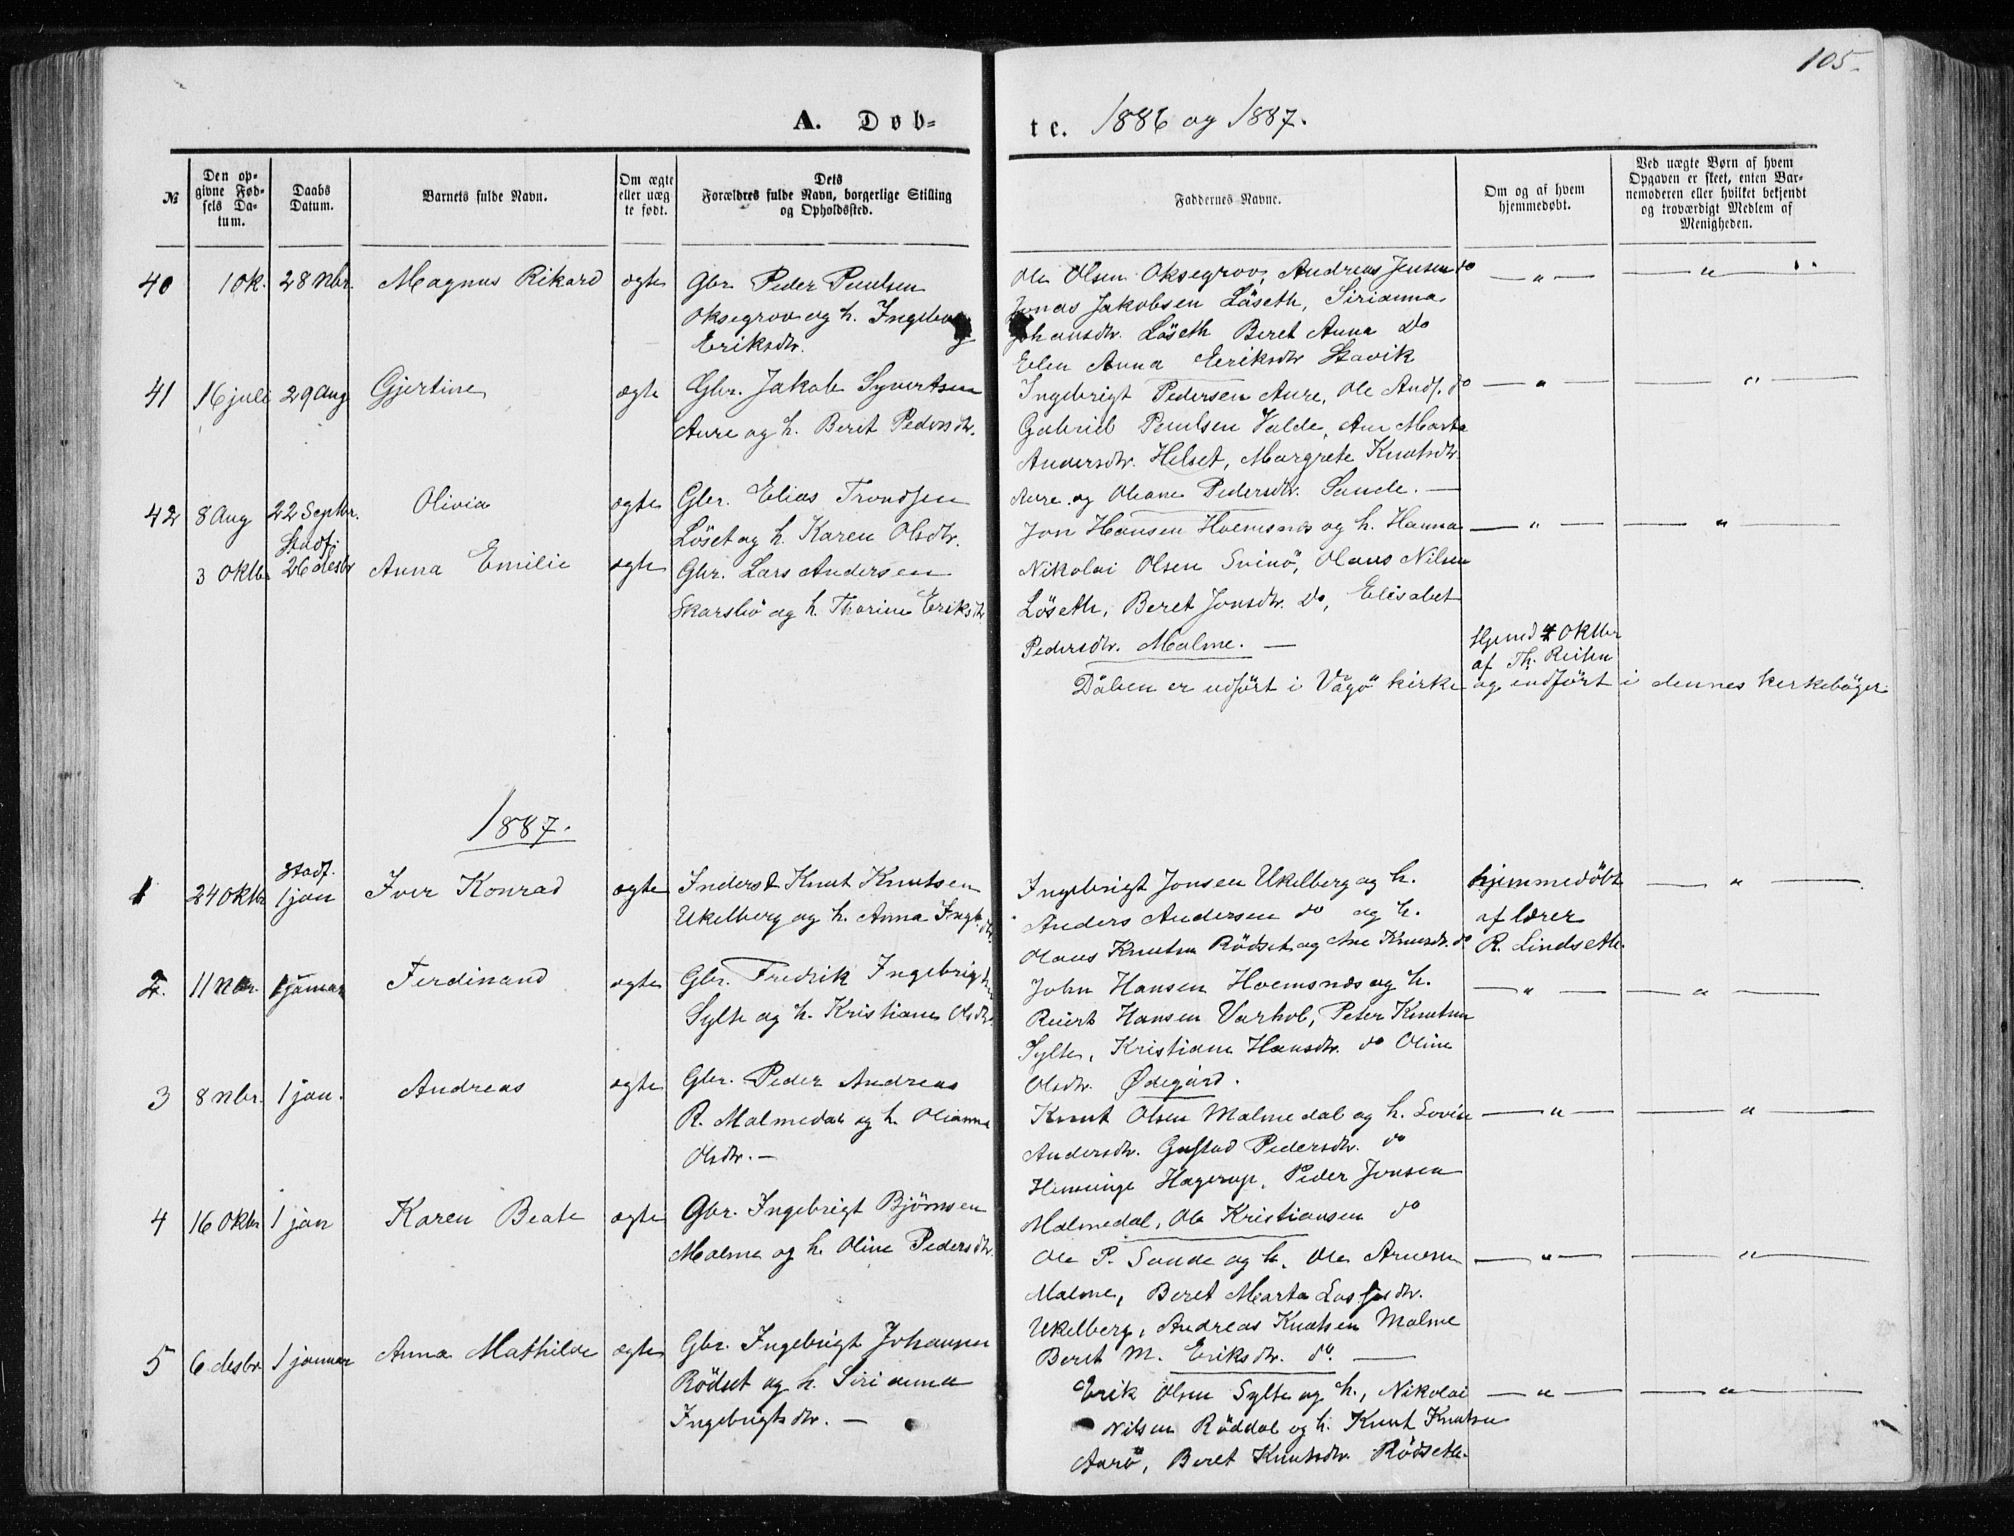 105.
A. Døb-
te. 1886 og 1887.
№
Den op-
givne Fød-
sels Da-
tum.
Daabs
Datum.
Barnets fulde Navn.
Om ægte
eller uæg
te født.
Dets
Forældres fulde Navn, borgerlige Stilling
og Opholdssted.
Faddernes Navne.
Om og af hvem
hjemmedøbt.
Ved uægte Børn af hvem
Opgaven er skeet, enten Bar-
nemoderen eller hvilket bekjendt
og troværdigt Medlem af
Menigheden.
40 1 ok. 28 Nbr. Magnus Rikard ægte Gbr. Peder Paulsen
Oksegrov og h. Ingeborg
Eriksdtr.
Ole Olsen Oksegrov, Andreas Jensen do — " — — " —
Jonas Jakobsen Löseth, Sirianna
Johansdtr. Löseth Beret Anna Do
Elen Anna Eriksdtr Stavik
41 16 juli 29 Aug Gjertine ægte Gbr. Jakob Syvertsen
Aure og h. Beret Pedersdtr.
Ingebrigt Pedersen Aure, Ole Andf. do — " — — " —
Gabriel Paulsen Valde, Ane Marta
Andersdtr. Helset, Margrete Knutsdtr.
Aure og Oliane Pedersdtr. Sande. —
42 8 Aug 22 Septbr. Olivia ægte Gbr. Elias Trondsen
Löset og h. Karen Olsdtr.
Jon Hansen Hoemsnes og h. Hanna — " — — " —
Stadf.
3 Oktbr 26 desbr Anna Emilie ægte Gbr. Lars Andersen
Skarsbö og h. Thorine Eriksdtr
Nikolai Olsen Svinö, Olaus Nilsen
Löseth, Beret Jonsdtr. Do, Elisabet
Pedersdtr. Malme. —
Hjemd 4 Oktbr
af Th. Reiten
Dåben er udfört i Vågö kirke og indfört i dennes kirkebøger
1887.
1 24 Oktbr Stadf.
1 jan Iver Konrad ægte Inderst Knut Knutsen
Ukelberg og h. Anna Ingb.dtr.
Ingebrigt Jonsen Ukelberg og h. hjemmedöbt — " —
Anders Andersen do og h. af lærer
Olaus Knutsen Rödset og Ane Knutsdtr. do R. Lindseth.
2. 11 Nbr. 1 januar Ferdinand ægte Gbr. Fredrik Ingebrigtsen
Sylte og h. Kristiane Olsdtr
John Hansen Hoemsnes og h. — " — — " —
Reiert Hansen Varhol, Peter Knutsen
Sylte, Kristiane Hansdtr. do Oline
Olsdtr. Ødegård.
3 8 Nbr. 1 jan. Andreas ægte Gbr. Peder Andreas
R. Malmedal og h. Olianna
Olsdtr. —
Knut Olsen Malmedal og h. Lovise — " — — " —
Andersdtr. Gustad Pedersdtr. do
Hagerup, Peder Jonsen
Malmedal, Ole Kristiansen do
4 16 Oktbr 1 jan Karen Beate ægte Gbr. Ingebrigt Bjørnsen
Malme og h. Oline Pedersdtr.
Ole P. Sande og h. Ole Arnesen — " — — " —
Malme, Beret Marta
Ukelberg, Andreas Knutsen Malme
Beret M. Eriksdtr. do. —
5 6 desbr. 1 januar Anna Mathilde ægte Gbr. Ingebrigt Johannsen
Rödset og h. Sirianna
Ingebrigtsdtr. —
Erik Olsen Sylte og h., Nikolai — " — — " —
Nilsen Röddal og h. Knut Knutsen
Aarö, Beret Knutsdtr. Rödseth.